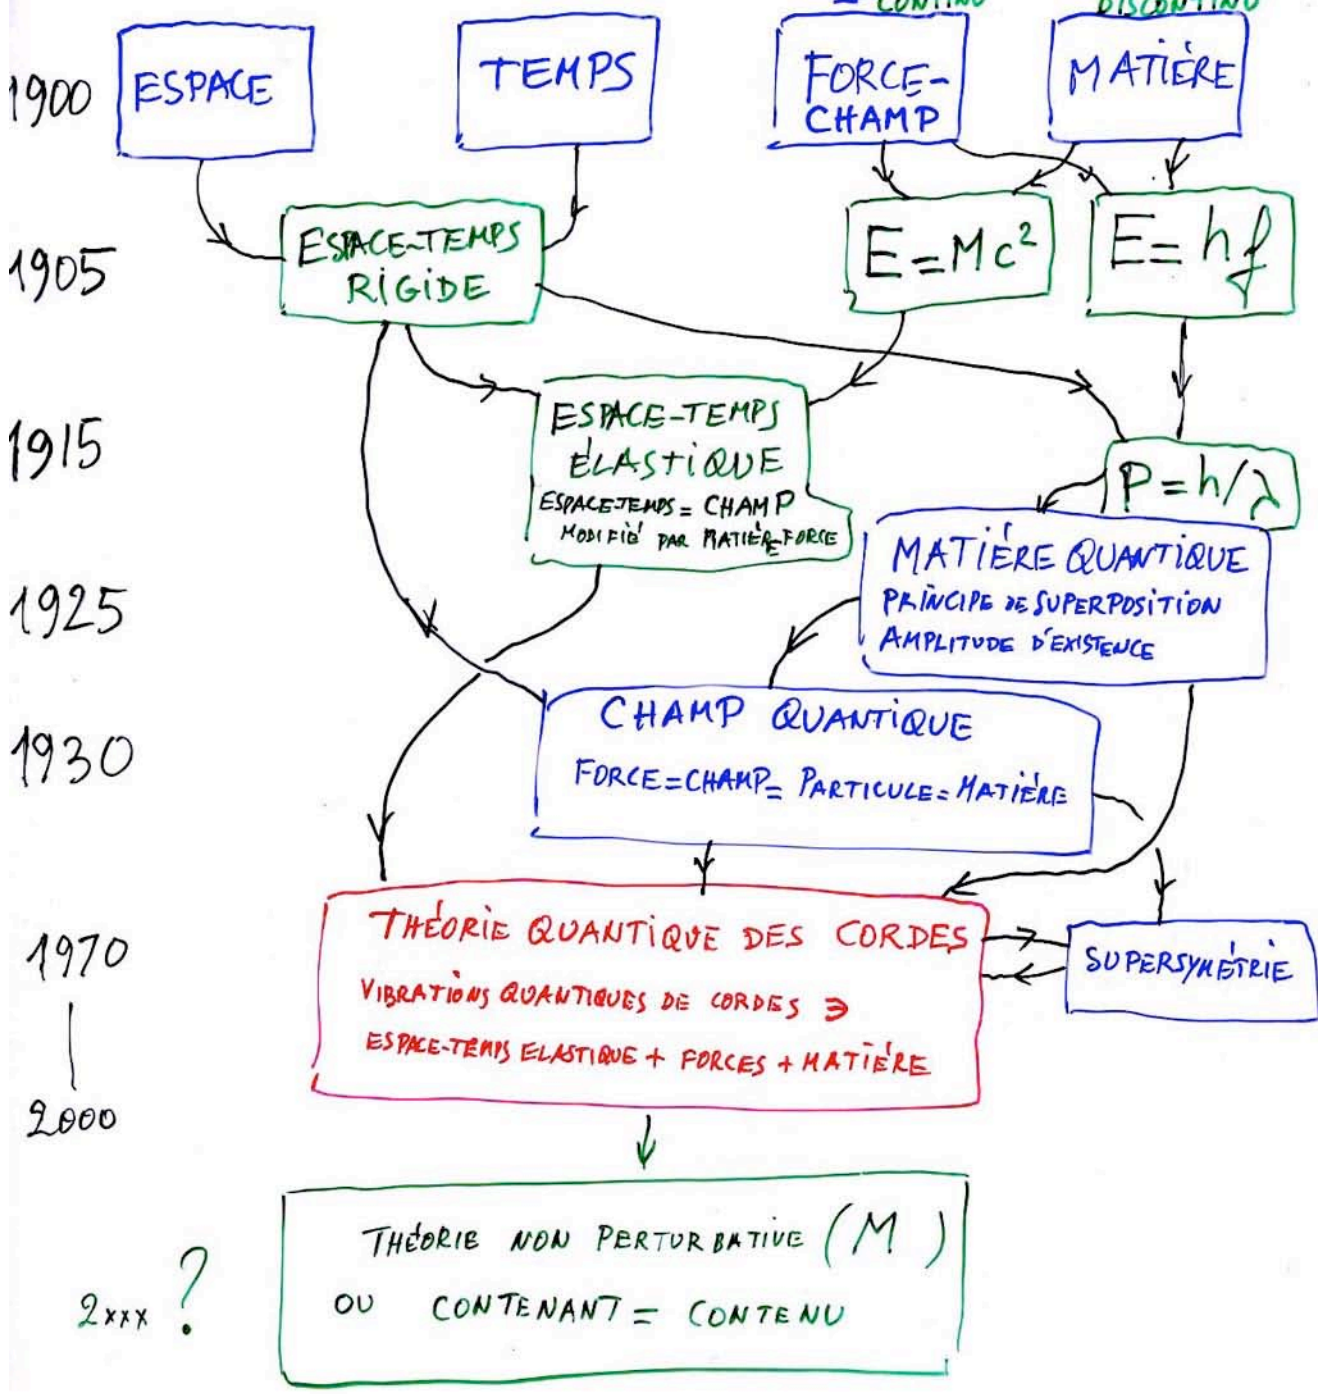 = CONTINU DISCONTINU
1900 ESPACE TEMPS FORCE- MATIÈRE
CHAMP
1905 ESPACE-TEMPS E=Mc² E=hf
RIGIDE
1915 ESPACE-TEMPS
ÉLASTIQUE
ESPACE-TEMPS = CHAMP
MODIFIÉ PAR MATIÈRE FORCE
P=h/λ
1925 MATIÈRE QUANTIQUE
PRINCIPE DE SUPERPOSITION
AMPLITUDE D'EXISTENCE
1930 CHAMP QUANTIQUE
FORCE=CHAMP= PARTICULE=MATIÈRE
1970 THÉORIE QUANTIQUE DES CORDES SUPERSYMÉTRIE
VIBRATIONS QUANTIQUES DE CORDES ∋
ESPACE-TEMPS ELASTIQUE + FORCES + MATIÈRE
2000
THÉORIE NON PERTURBATIVE (M )
2xxx ? OU CONTENANT = CONTENU